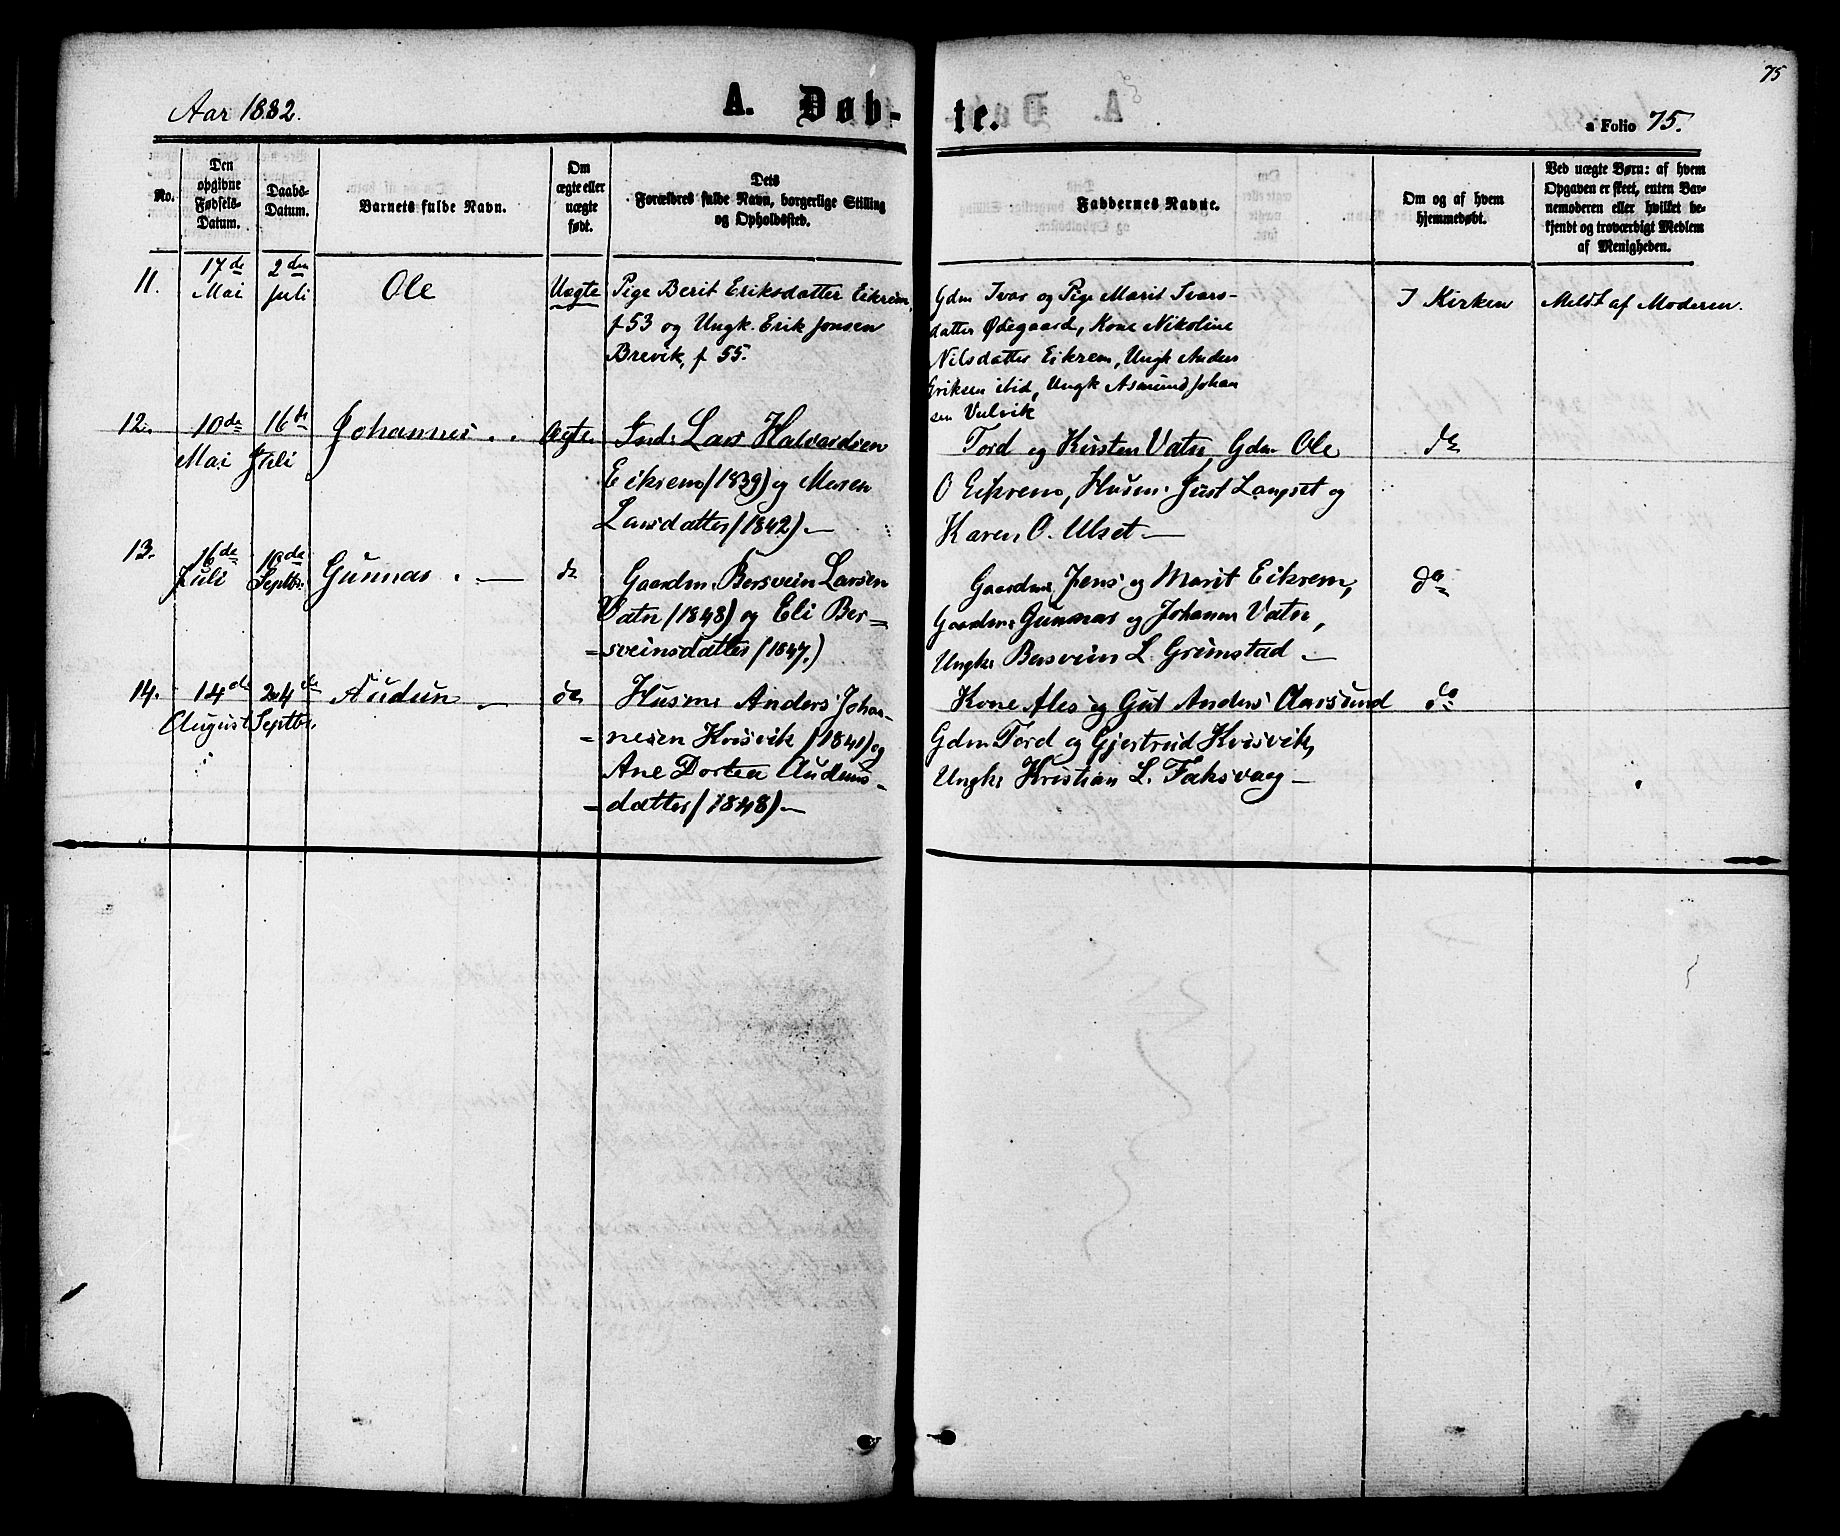 75
Aar 1882.
A. Døb-
te.
a Folio 75.
No.
Den
opgivne
Fødsels-
Datum.
Daabs-
Datum.
Barnets fulde Navn.
Om
ægte eller
uægte
født.
Dets
Forældres fulde Navn, borgerlige Stilling
og Opholdssted.
Faddernes Navne.
Om og af hvem
hjemmedøbt.
Ved uægte Børn: af hvem
Opgaven er skeet, enten Bar-
nemoderen eller hvilket be-
kjendt og troværdigt Medlem
af Menigheden.
11.
17de
Mai
2den
Juli
Ole
Uægte
Pige Berit Eriksdatter Eikrem,
f 53 og Ungk. Erik Jonsen
Brevik, f 55.
Gdm Ivar og Pige Marit Ivars-
datter Ødegaard, Kone Nikoline
Nilsdatter Eikrem, Ungk Anders
Eriksen ibid, Ungk Asmund Johan
sen Vulvik
I Kirken
Meldt af Moderen.
12.
10de
Mai
16de
Juli
Johannes
Ægte
Lars Halvardsen
Eikrem (1839) og Maren
Larsdatter (1842).—
Tord og Kirsten Vatn, Gdm Ole
O Eikrem, Husm. Just Langset og
Karen O. Ulset —
do
13.
16de
Juli
10de
Septbr.
Gunnar . —
do
Gaardm. Bersvein Larsen
Vatn (1848) og Eli Ber=
=sveinsdatter (1847.)
Gaardm. Jens og Marit Eikrem,
Gaardm. Gunnar og Johanna Vatn,
Ungk. Bersvein L. Grimstad —
do
14.
14de
August
24de
Septbr.
Audun —
do
Husm. Anders Johan-
=nesen Kvisvik (1841) og
Ane Dortea Auduns=
=datter (1848) —
Kone Ales og Gut Anders Aarsund
Gdm Tord og Gjertrud Kvisvik,
Ungk. Kristian L. Faksvaag —
do